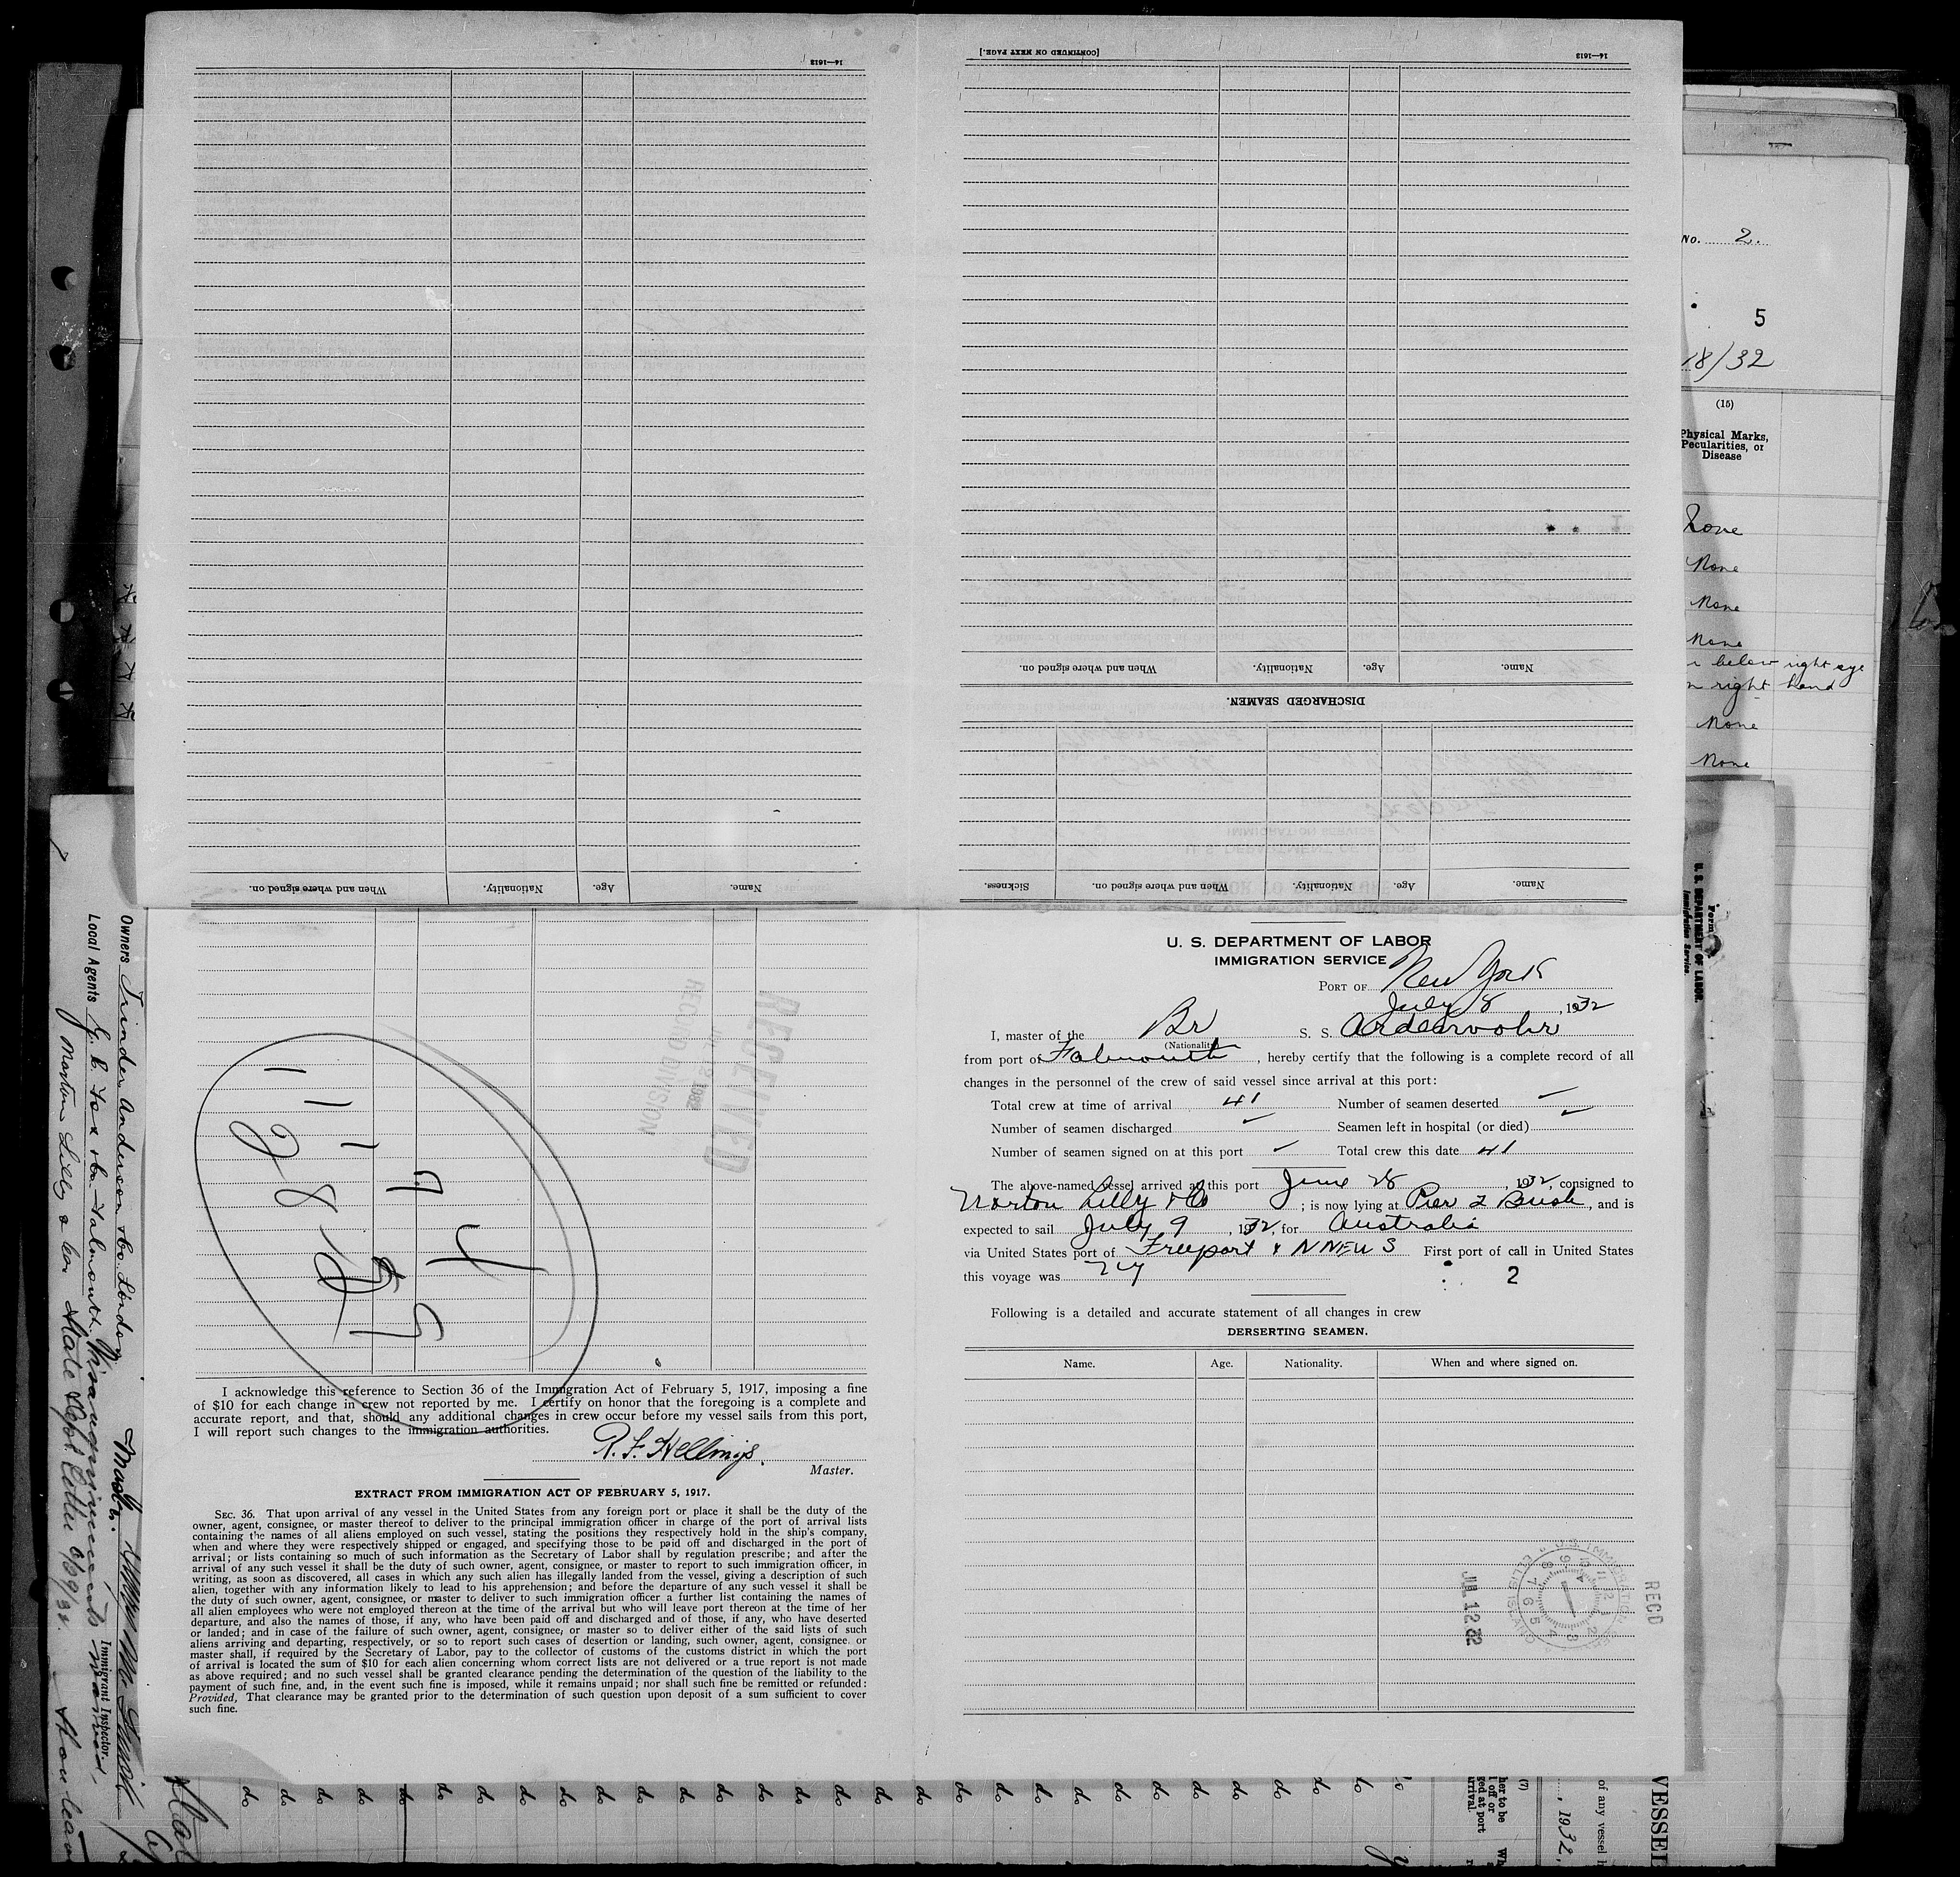 [CONTINUED ON NEXT PAGE.]
14—1613
14—1613
When and where signed on.
Nationality.
Age.
Name.
DISCHARGED SEAMEN.
Sickness.
When and where signed on.
Nationality.
Age.
Name.
When and where signed on.
Nationality.
Age.
Name.
No. 2.
5
18/32
(15)
Physical Marks,
Pecularities, or
Disease
None
None
None
None
below right eye
right hand
None
None
U. S. DEPARTMENT OF LABOR
IMMIGRATION SERVICE
PORT OF New York
July 8, 1932
I, master of the Br S. S. Ardenvohr
(Nationality)
from port of Falmouth, hereby certify that the following is a complete record of all
changes in the personnel of the crew of said vessel since arrival at this port:
Total crew at time of arrival 41 Number of seamen deserted —
Number of seamen discharged — Seamen left in hospital (or died) —
Number of seamen signed on at this port — Total crew this date 41
The above-named vessel arrived at this port June 28, 1932, consigned to
Norton Lilly & Co; is now lying at Pier 2 Bush, and is
expected to sail July 9, 1932, for Australia
via United States port of Freeport & N NEWS First port of call in United States
this voyage was NY
2
Following is a detailed and accurate statement of all changes in crew
DERSERTING SEAMEN.
Name. Age. Nationality. When and where signed on.
RECD
JUL 12 32
U.S. IMMIGRATION
ELLIS ISLAND
RECEIVED
RECORD DIVISION
I acknowledge this reference to Section 36 of the Immigration Act of February 5, 1917, imposing a fine
of $10 for each change in crew not reported by me. I certify on honor that the foregoing is a complete and
accurate report, and that, should any additional changes in crew occur before my vessel sails from this port,
I will report such changes to the immigration authorities.
R. F. Hellings.
Master.
EXTRACT FROM IMMIGRATION ACT OF FEBRUARY 5, 1917.
SEC. 36. That upon arrival of any vessel in the United States from any foreign port or place it shall be the duty of the
owner, agent, consignee, or master thereof to deliver to the principal immigration officer in charge of the port of arrival lists
containing the names of all aliens employed on such vessel, stating the positions they respectively hold in the ship's company,
when and where they were respectively shipped or engaged, and specifying those to be paid off and discharged in the port of
arrival; or lists containing so much of such information as the Secretary of Labor shall by regulation prescribe; and after the
arrival of any such vessel it shall be the duty of such owner, agent, consignee, or master to report to such immigration officer, in
writing, as soon as discovered, all cases in which any such alien has illegally landed from the vessel, giving a description of such
alien, together with any information likely to lead to his apprehension; and before the departure of any such vessel it shall be
the duty of such owner, agent, consignee, or master to deliver to such immigration officer a further list containing the names of
all alien employees who were not employed thereon at the time of the arrival but who will leave port thereon at the time of her
departure, and also the names of those, if any, who have been paid off and discharged and of those, if any, who have deserted
or landed; and in case of the failure of such owner, agent, consignee, or master so to deliver either of the said lists of such
aliens arriving and departing, respectively, or so to report such cases of desertion or landing, such owner, agent, consignee. or
master shall, if required by the Secretary of Labor, pay to the collector of customs of the customs district in which the port
of arrival is located the sum of $10 for each alien concerning whom correct lists are not delivered or a true report is not made
as above required; and no such vessel shall be granted clearance pending the determination of the question of the liability to the
payment of such fine, and, in the event such fine is imposed, while it remains unpaid; nor shall such fine be remitted or refunded:
Provided, That clearance may be granted prior to the determination of such question upon deposit of a sum sufficient to cover
such fine.
Owners Trinder Anderson & Co. London
Local Agents G. C. Fox & Co. Falmouth
Norton Lilly & Co.
Master.
Immigrant Inspector.
Form
U. S. DEPARTMENT OF LABOR
Immigration Service
do do do do do do do do do do do do do do do do do do do do do do do do do do do do do
(7)
VESSEL
of any vessel
, 1932,